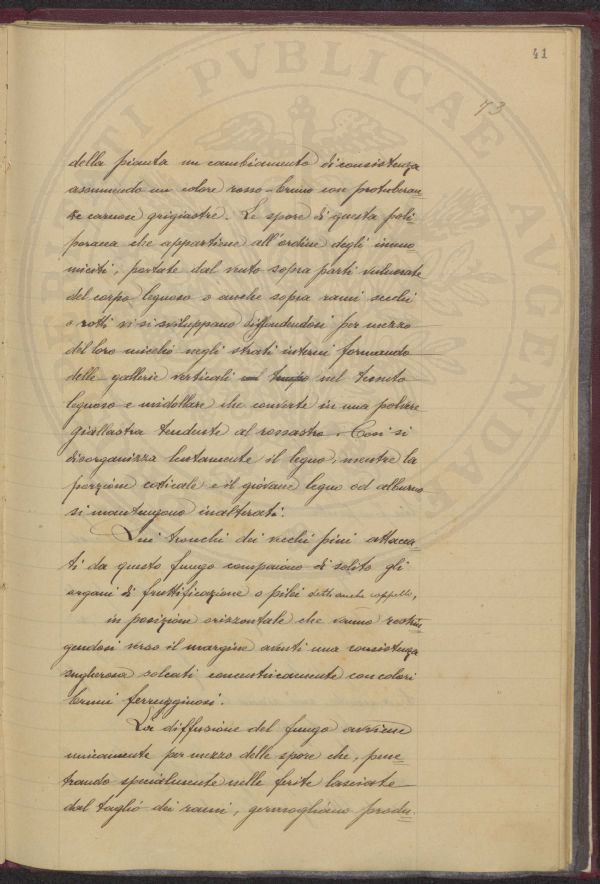 41
73
della pianta un cambiamento di consistenza
assumendo un colore rosso-bruno con protuberan
ze carnose grigiastre. Le spore di questa poli
poracea che appartiene all'ordine degli imeno
miceti, portate dal vento sopra parti vulnerate
del corpo legnoso o anche sopra rami secchi
o rotti vi si sviluppano diffondendosi per mezzo
del loro micelio negli strati interni formando
delle gallerie verticali nel tempo nel tessuto
legnoso e midollare che converte in una polvere
giallastra tendente al rossastro. Così si
disorganizza lentamente il legno, mentre la
porzione corticale e il giovane legno od alburno
si mantengono inalterati.
Sui tronchi dei vecchi pini attacca
ti da questo fungo compaiono di solito gli
organi di fruttificazione o pilei detti anche cappelli,
in posizione orizzontale che vanno restrin
gendosi verso il margine aventi una consistenza
sugherosa solcati concentricamente con colori
bruni ferrugginosi.
La diffusione del fungo avviene
unicamente per mezzo delle spore che, pene
trando specialmente nelle ferite lasciate
dal taglio dei rami, germogliano produ
REIPUBLICAE AVGENDAE